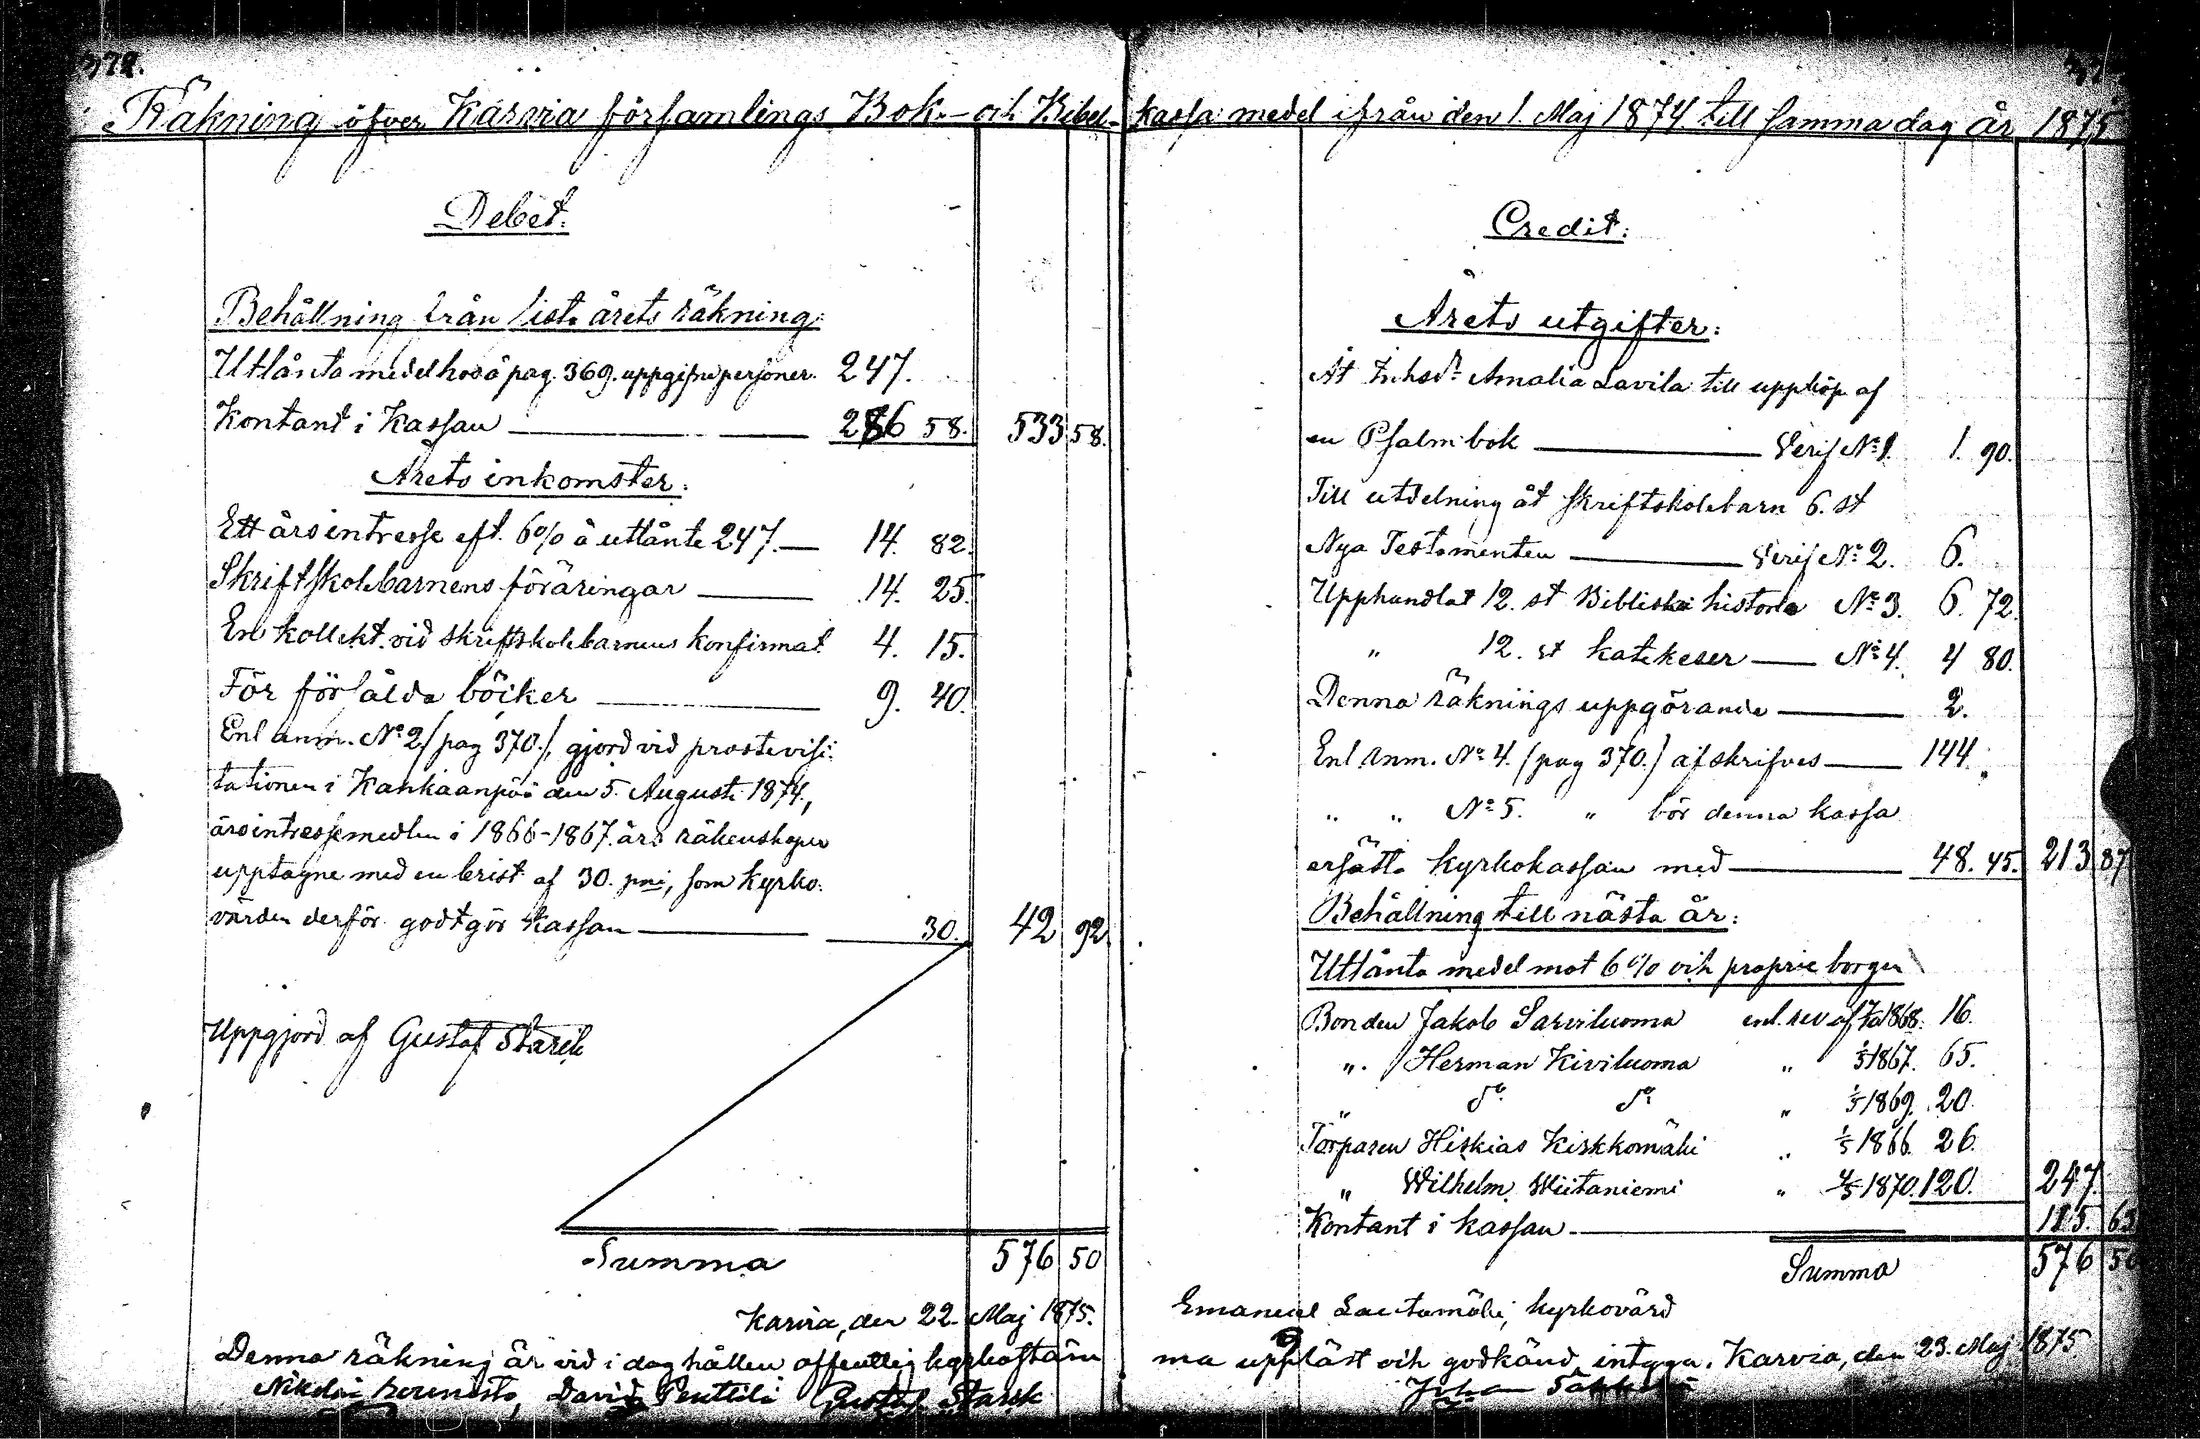 372.
Räkning öfver Karvia församlings Bok- och Bibel-kassa medel ifrån den 1. Maj 1874 till samma dag år 1875
Debet:
Behållning från sista årets räkning:
Utlånta medel hos å pag. 369. uppgifne personer. 247.
Kontant i Kassan 286 58. 533 58.
Årets inkomster:
Ett årsintresse eft. 6% å utlånte 247. 14. 82.
Skriftskolebarnens föräringar 14. 25.
En kollekt. vid skriftskolebarnens konfirmat. 4. 15.
För försålda böcker 9. 40.
Enl anm. No 2 /pag 370./, gjord vid prostevisi-
tationen i Kankaanpää den 5. Augusti 1874,
årsintressemedlen i 1866-1867. års räkenskaper
upptagne med en brist af 30. pni, som kyrko-
värden derför godtgör kassan 30. 42 92.
Uppgjord af Gustaf Starck
Summa 576 50
Karvia, den 22. Maj 1875.
Denna räkning är vid i dag hållen offentlig kyrkostäm
David Penttilä Gustaf Starck
Credit:
Årets utgifter:
Åt Inhsdr Amalia Lavila till uppköp af
en Psalmbok Verif No 1. 1. 90.
Till utdelning åt skriftskolebarn 6. st
Nya Testamenten Verif No 2. 6.
Upphandlat 12. st Bibliska historia No 3. 6. 72.
" 12. st katekeser No 4. 4 80.
Denna räknings uppgörande 2.
Enl Anm. No 4. /pag 370./ afskrifves 144.
" " No 5. " bör denna kassa
ersätta kyrkokassan med 48. 45. 213 87
Behållning till nästa år:
Utlånta medel mot 6% och proprie borgen
Bonden Jakob Sarviluoma enl. rev af 1868. 16.
" Herman Kiviluoma " 1/5 1867. 65.
" do do " 1/5 1869. 20.
Torparen Hiskias Kiskkomäki " 1/5 1866. 26.
" Wilhelm Wiitaniemi " 1870. 120. 247.
Kontant i kassan 115. 63
Summa 576 50
Emanuel Lautamäki, kyrkovärd
ma uppläst och godkänd, intyga. Karvia, den 23. Maj 1875
Johan